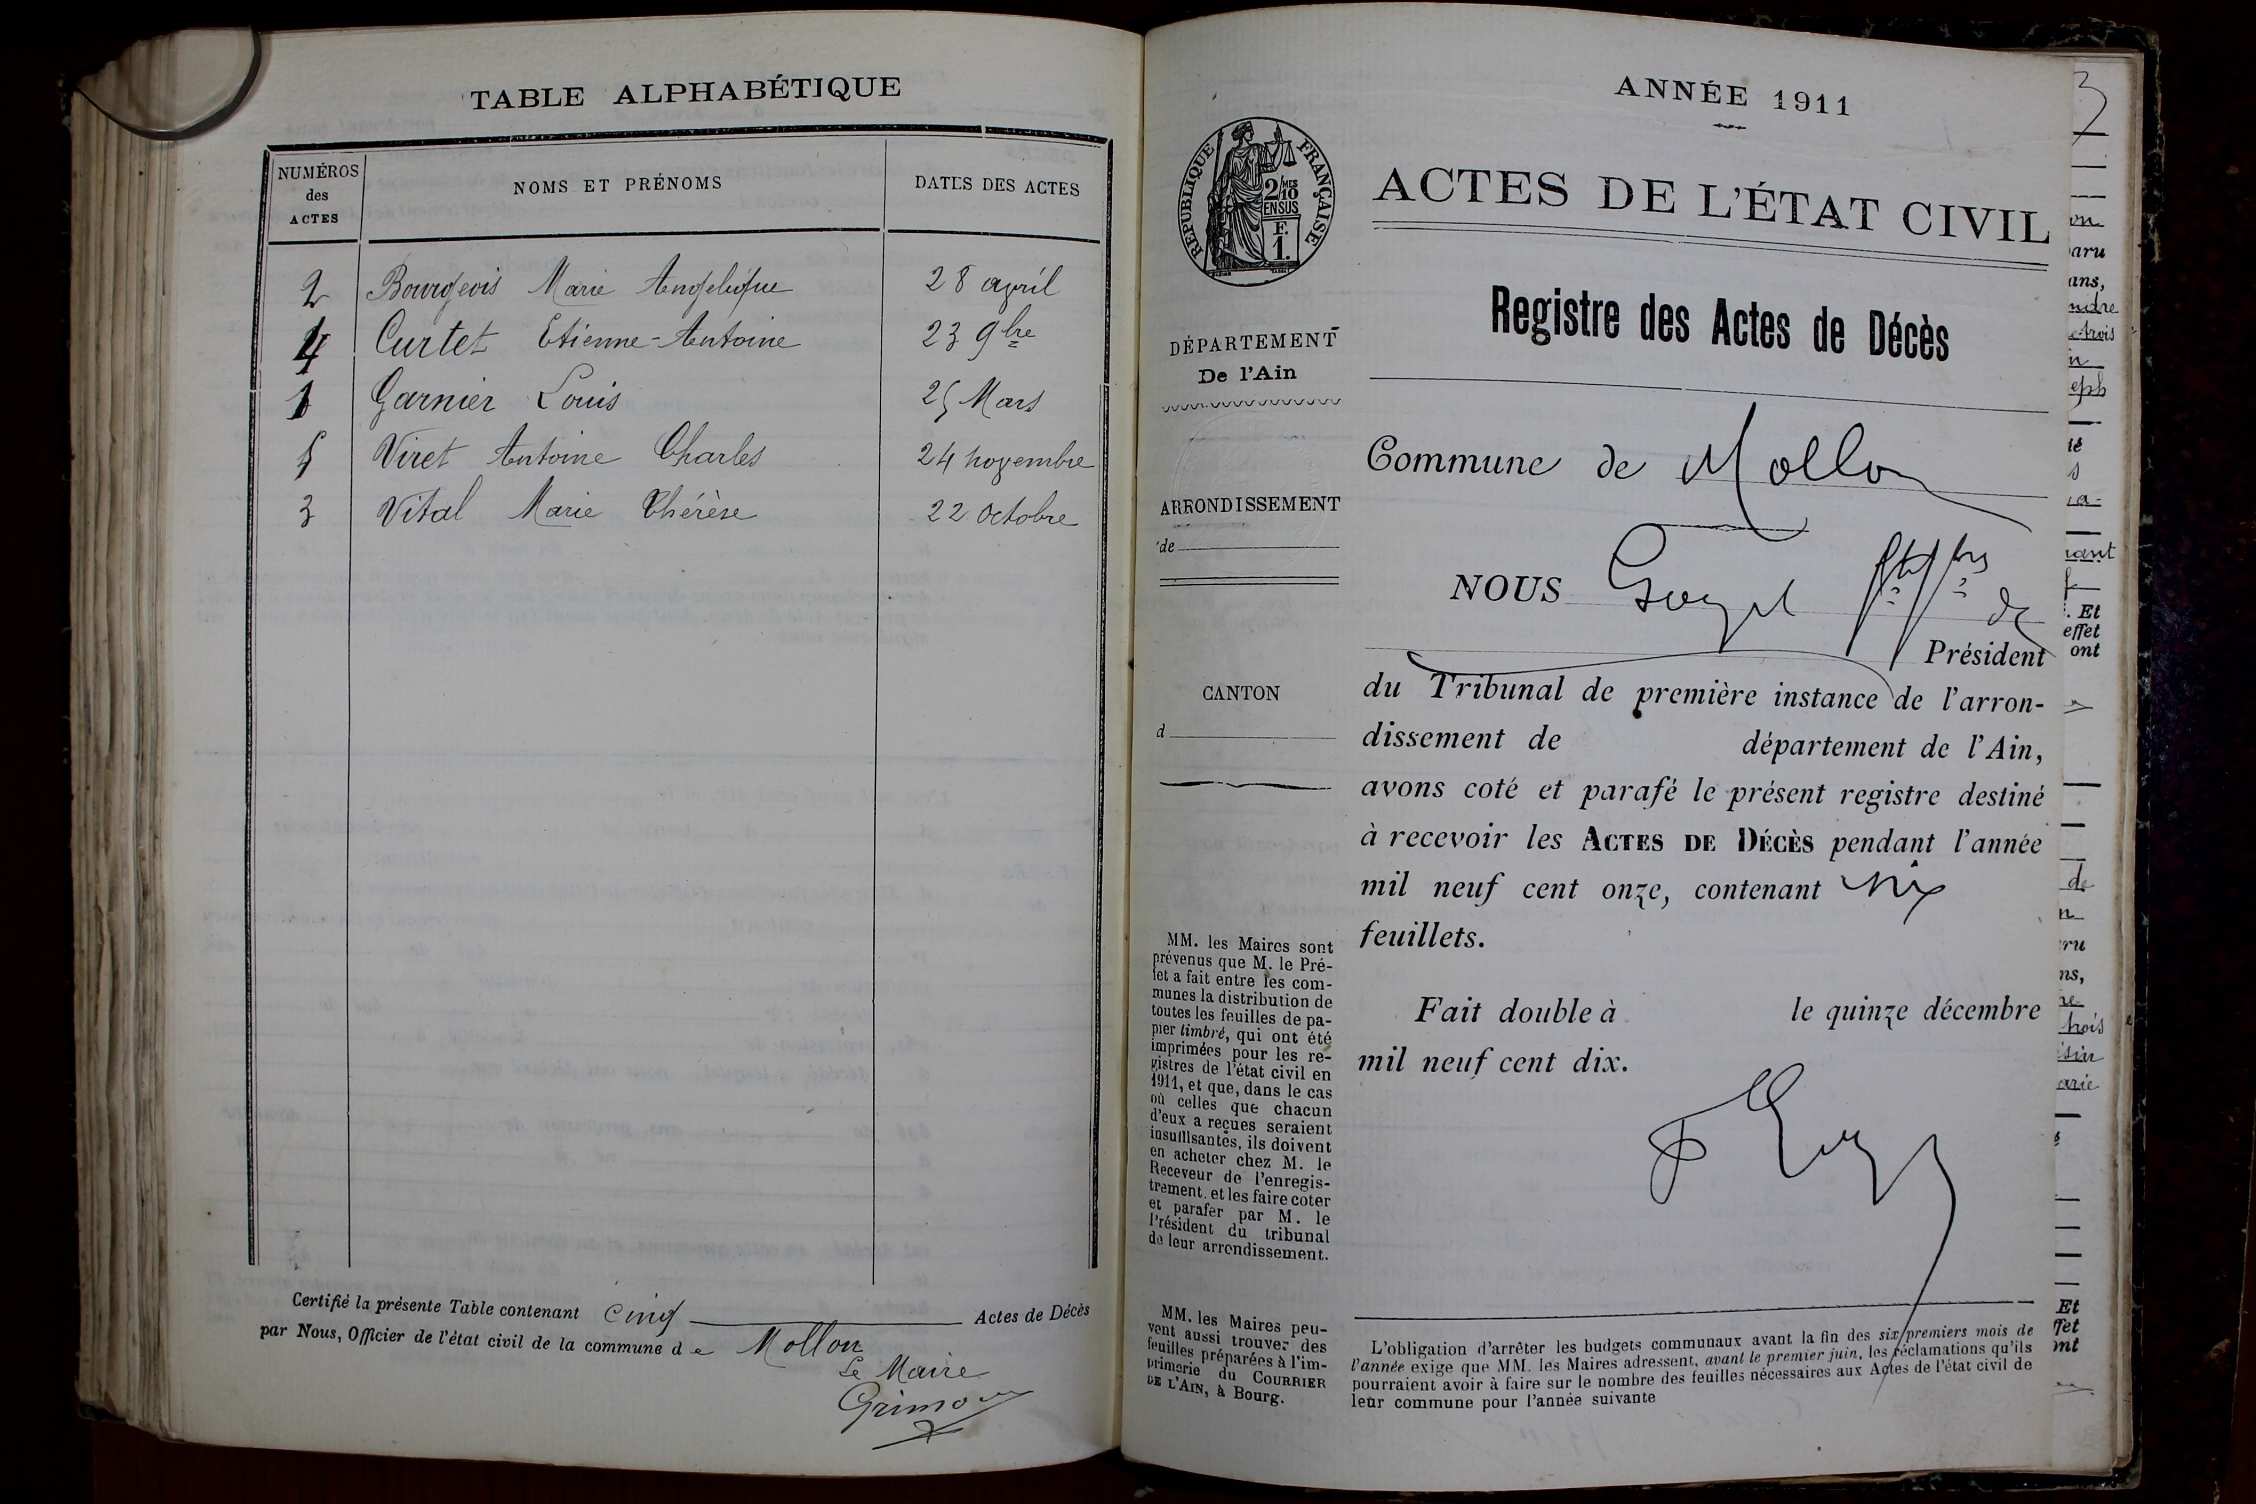 TABLE ALPHABÉTIQUE
NUMÉROS
des
ACTES
NOMS ET PRÉNOMS
DATES DES ACTES
2 Bourgeois Marie Angelique 28 avril
4 Curtet Etienne-Antoine 23 9bre
1 Garnier Louis 25 Mars
5 Viret Antoine Charles 24 novembre
3 Vital Marie Thérèse 22 octobre
Certifié la présente Table contenant cinq Actes de Décès
par Nous, Officier de l'état civil de la commune de Mollon
Le Maire
ANNÉE 1911
RÉPUBLIQUE FRANÇAISE
2/10 MES
EN SUS
F.
1.
ACTES DE L'ÉTAT CIVIL
Registre des Actes de Décès
DÉPARTEMENT
De l'Ain
ARRONDISSEMENT
de
CANTON
d
Commune de Mollon
NOUS
Président
du Tribunal de première instance de l'arron-
dissement de département de l'Ain,
avons coté et parafé le présent registre destiné
à recevoir les ACTES DE DÉCÈS pendant l'année
mil neuf cent onze, contenant six
feuillets.
Fait double à le quinze décembre
mil neuf cent dix.
MM. les Maires sont
prévenus que M. le Pré-
fet a fait entre les com-
munes la distribution de
toutes les feuilles de pa-
pier timbré, qui ont été
imprimées pour les re-
gistres de l'état civil en
1911, et que, dans le cas
où celles que chacun
d'eux a reçues seraient
insuffisantes, ils doivent
en acheter chez M. le
Receveur de l'enregis-
trement. et les faire coter
et parafer par M. le
Président du tribunal
de leur arrondissement.
MM. les Maires peu-
vent aussi trouver des
feuilles préparées à l'im-
primerie du COURRIER
DE L'AIN, à Bourg.
L'obligation d'arrêter les budgets communaux avant la fin des six premiers mois de
l'année exige que MM. les Maires adressent, avant le premier juin, les réclamations qu'ils
pourraient avoir à faire sur le nombre des feuilles nécessaires aux Actes de l'état civil de
leur commune pour l'année suivante